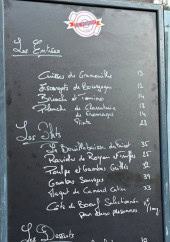 Les Entrées
Cuisses de Grenouilles 13
Escargots de Bourgogne 12
Planche de Charcuterie
de Fromages 14
Mixte
Les Plats
La Bouillabaisse du 35
Ravioles de Royan et Truffes 25
Poulpe et Gambas Grillés 32
Gambas Sauvages 29
Magret de Canard Entier
Côte de Boeuf
pour deux personnes
Les Desserts